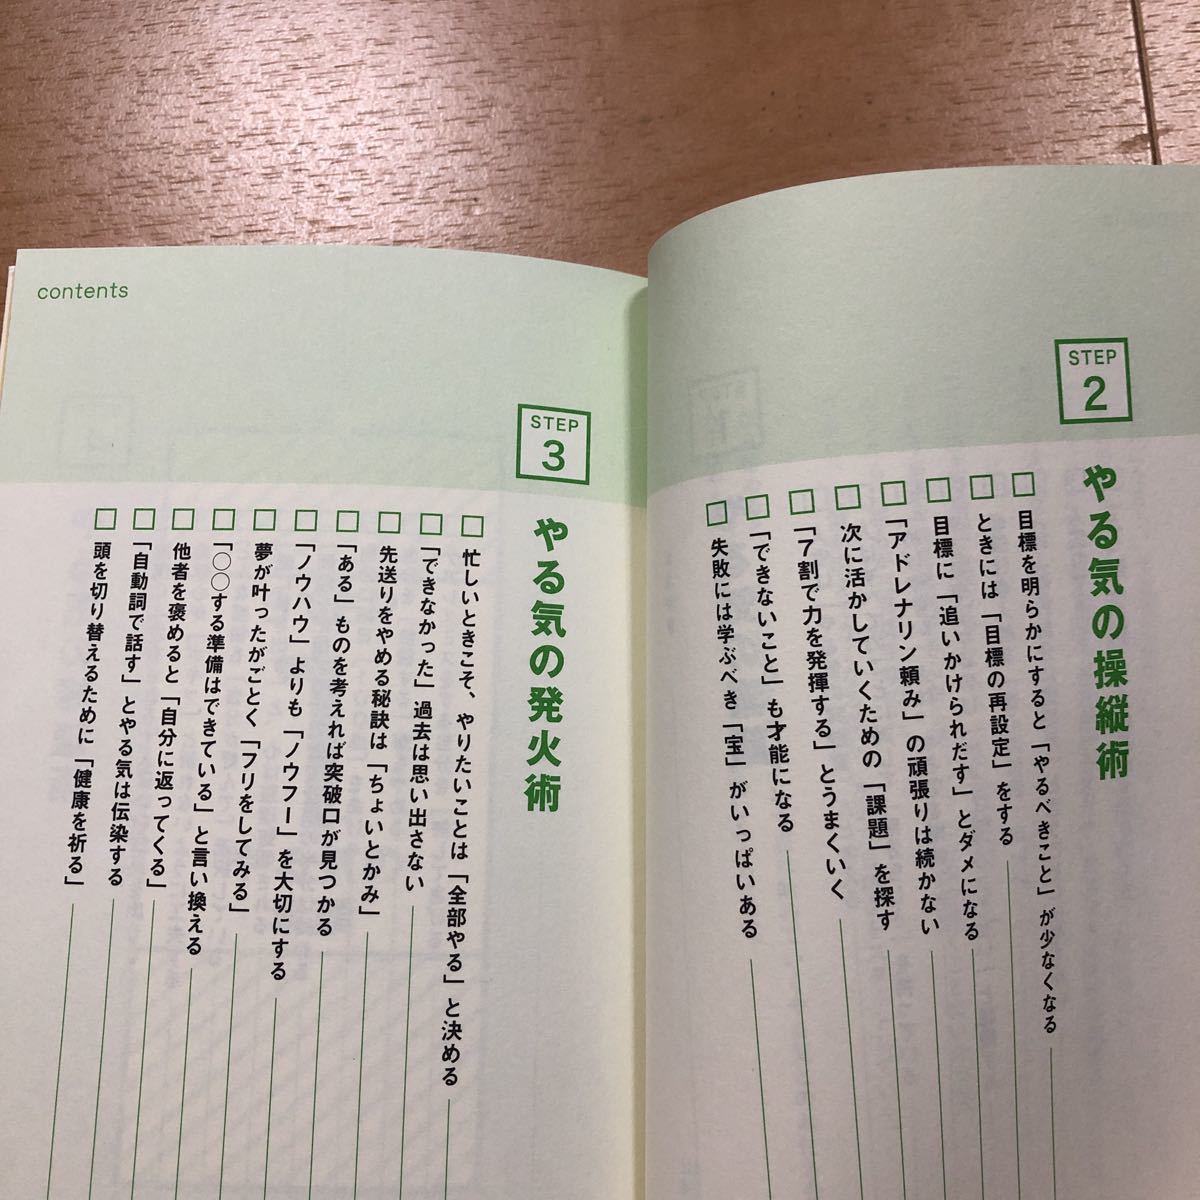 STEP
2
やる気の操縦術
目標を明らかにすると「やるべきこと」が少なくなる
ときには「目標の再設定」をする
目標に「追いかけられだす」とダメになる
「アドレナリン頼み」の頑張りは続かない
次に活かしていくための「課題」を探す
「7割で力を発揮する」とうまくいく
「できないこと」も才能になる
失敗には学ぶべき「宝」がいっぱいある
contents
STEP
3
やる気の発火術
忙しいときこそ、やりたいことは「全部やる」と決める
「できなかった」過去は思い出さない
先送りをやめる秘訣は「ちょいとかみ」
「ある」ものを考えれば突破口が見つかる
「ノウハウ」よりも「ノウフー」を大切にする
夢が叶ったがごとく「フリをしてみる」
「○○する準備はできている」と言い換える
他者を褒めると「自分に返ってくる」
「自動詞で話す」とやる気は伝染する
頭を切り替えるために「健康を祈る」